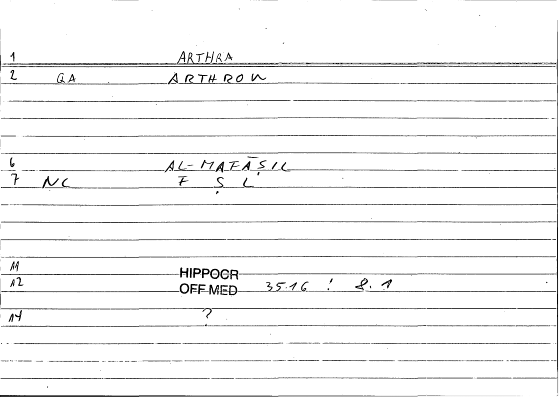 1 ARTHRA
2 GA ARTHRON
6 AL-MAFĀṢIL
7 NC F Ṣ L
11 HIPPOCR
12 OFF MED 35.16 ! 8.1
14 ?